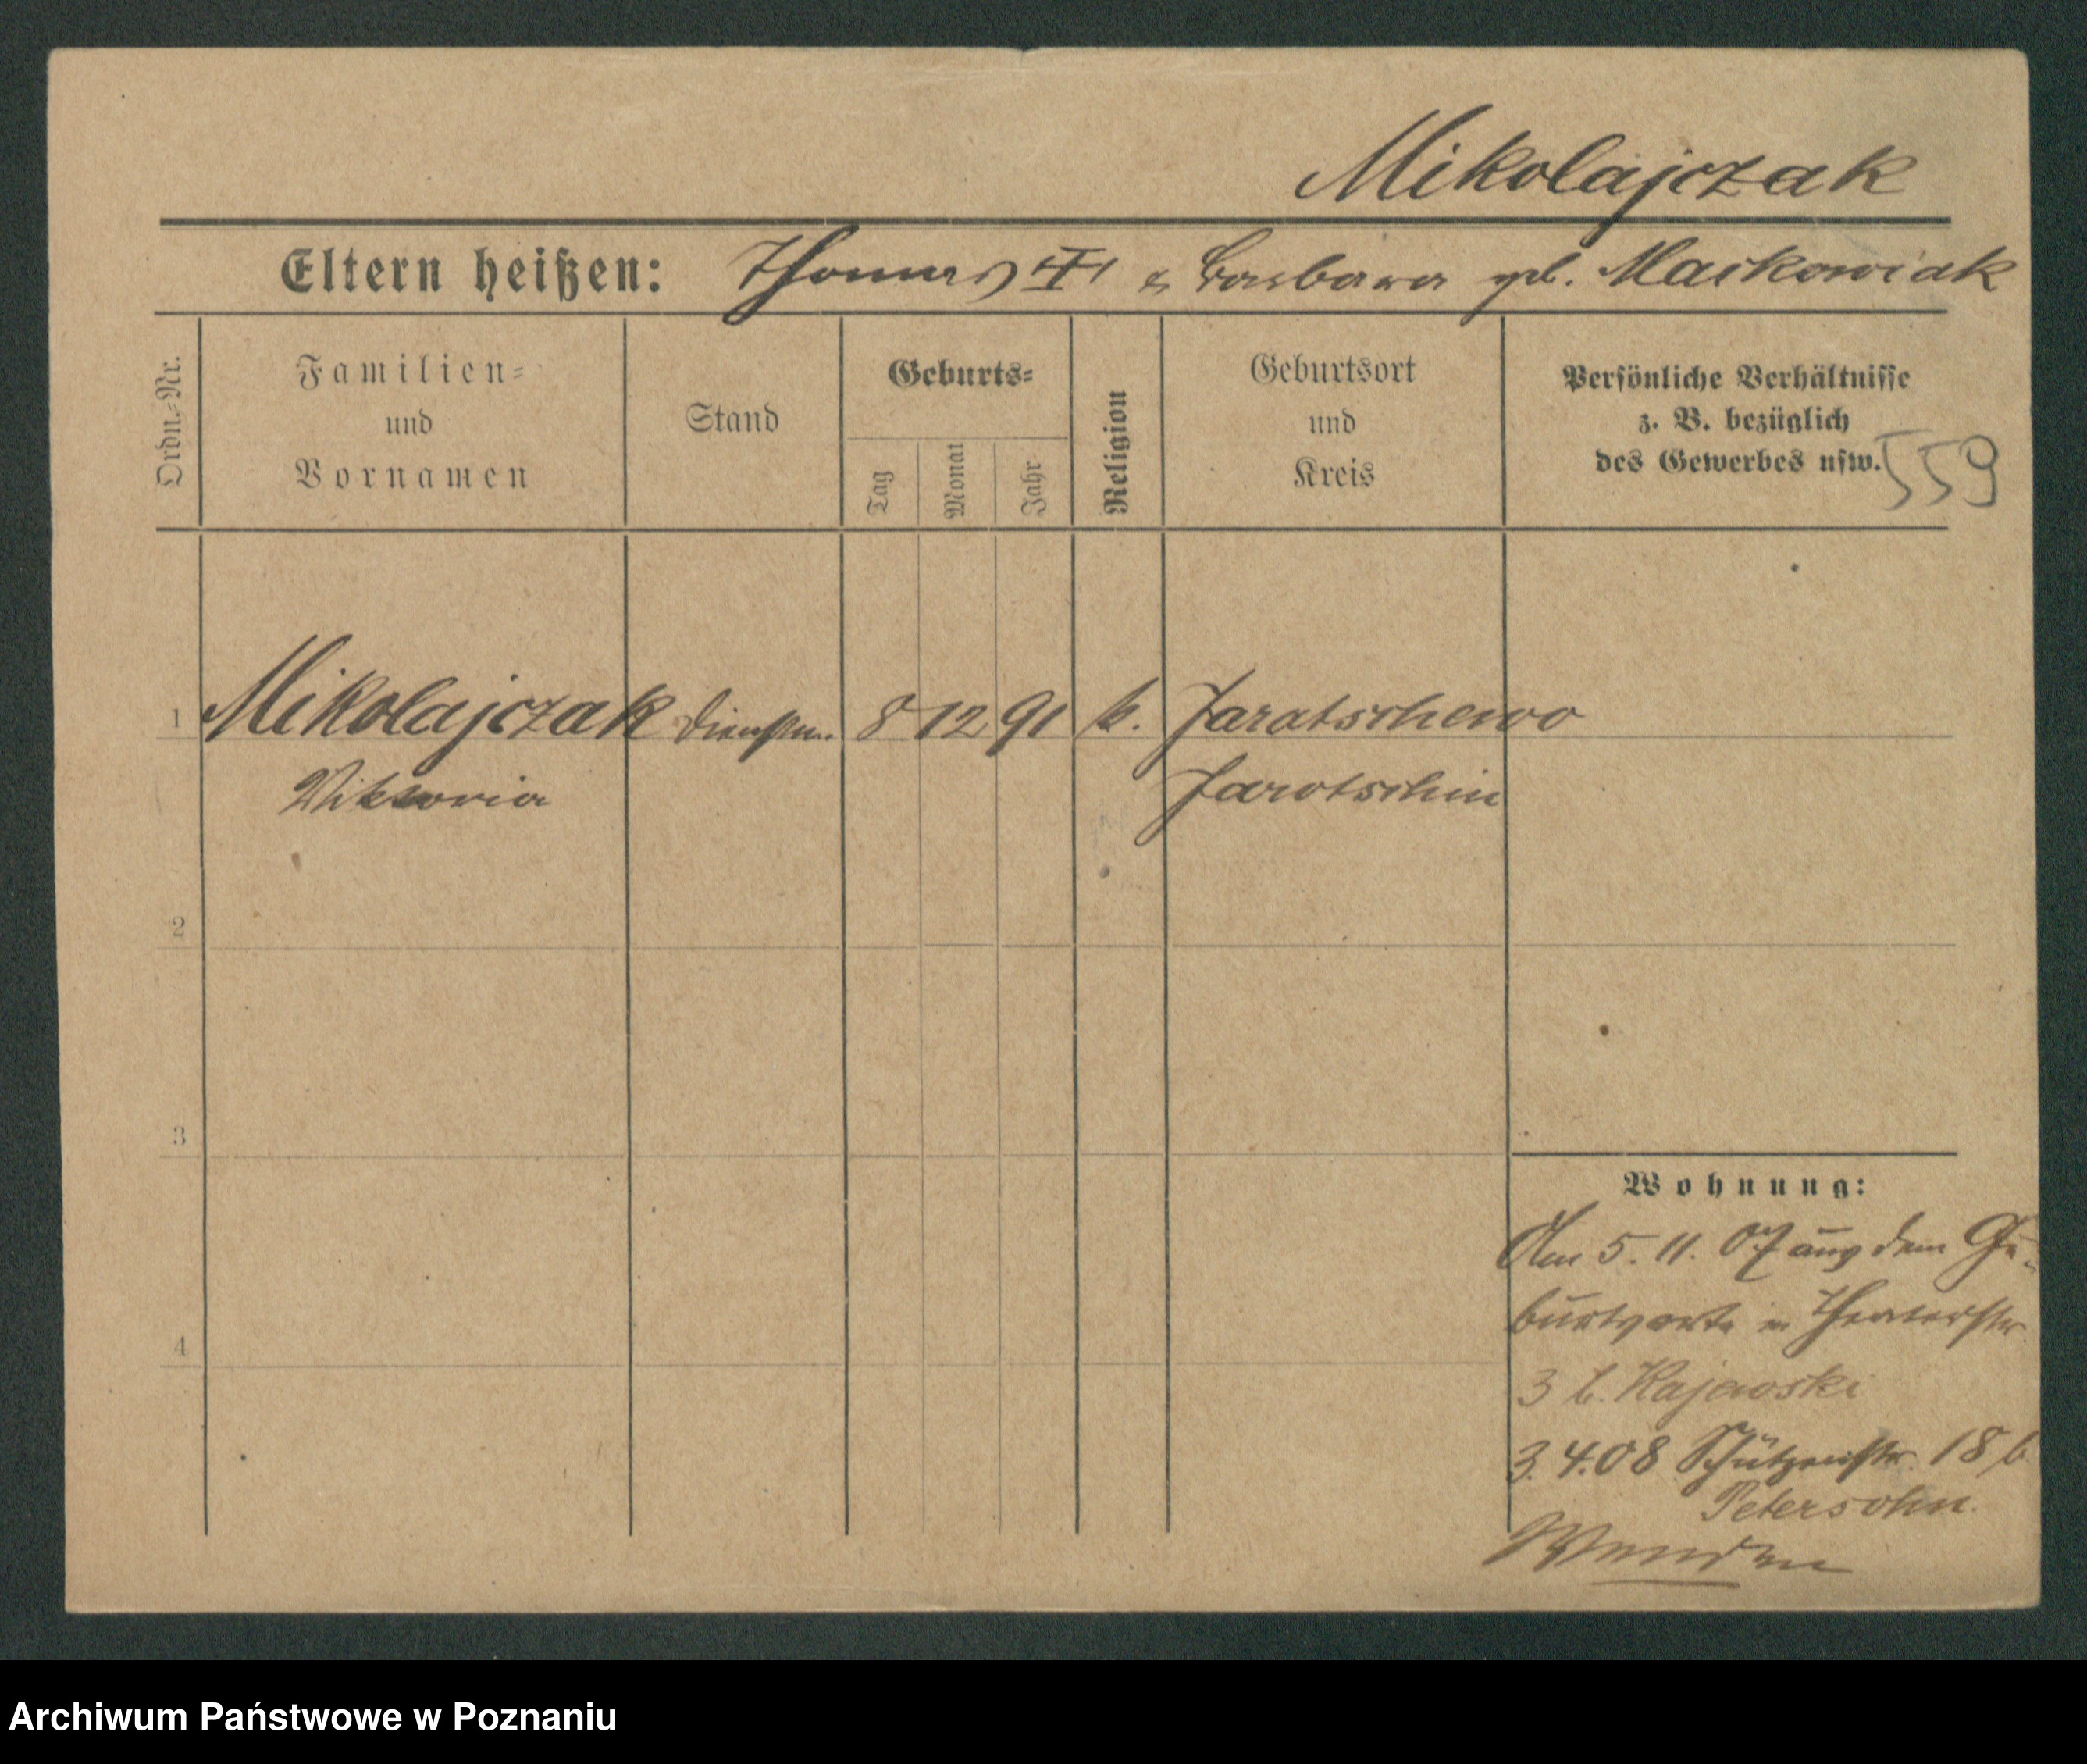 Mikolajczak
Eltern heißen: Thomas & Barbara geb. Maikowiak
Ordn.-Nr.
Familien-
und
Vornamen
Stand
Geburts-
Tag
Monat
Jahr
Religion
Geburtsort
und
Kreis
Persönliche Verhältnisse
z. B. bezüglich
des Gewerbes usw.
559
1 Mikolajczak Dienstm. 8 12 91 k. Jaratschewo
Viktoria Jarotschin
2
3
4
Wohnung:
Am 5. 11. 07 aus dem Ge-
burtsorte n Theaterstr.
3 b. Kajewski
3. 4. 08 Schützenstr. 18 b
Petersohn.
Wenden
Archiwum Państwowe w Poznaniu